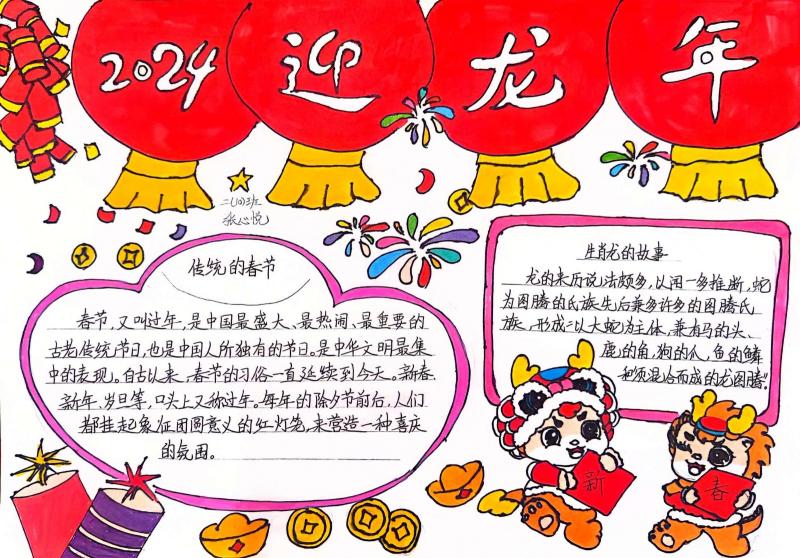 2024 迎 龙 年
二(10)班
张心悦
传统的春节
春节,又叫过年,是中国最盛大、最热闹、最重要的
古老传统节日,也是中国人所独有的节日。是中华文明最集
中的表现。自古以来,春节的习俗一直延续到今天。新春
新年、岁旦等,口头上又称过年。每年的除夕节前后,人们
都挂起象征团圆意义的红灯笼,来营造一种喜庆
的氛围。
生肖龙的故事
龙的来历说法颇多,以闻一多推断,蛇
为图腾的氏族先后兼多许多的图腾氏
族,形成"以大蛇为主体,兼有马的头、
鹿的角,狗的爪,鱼的鳞
和须混合而成的龙图腾"。
新
春